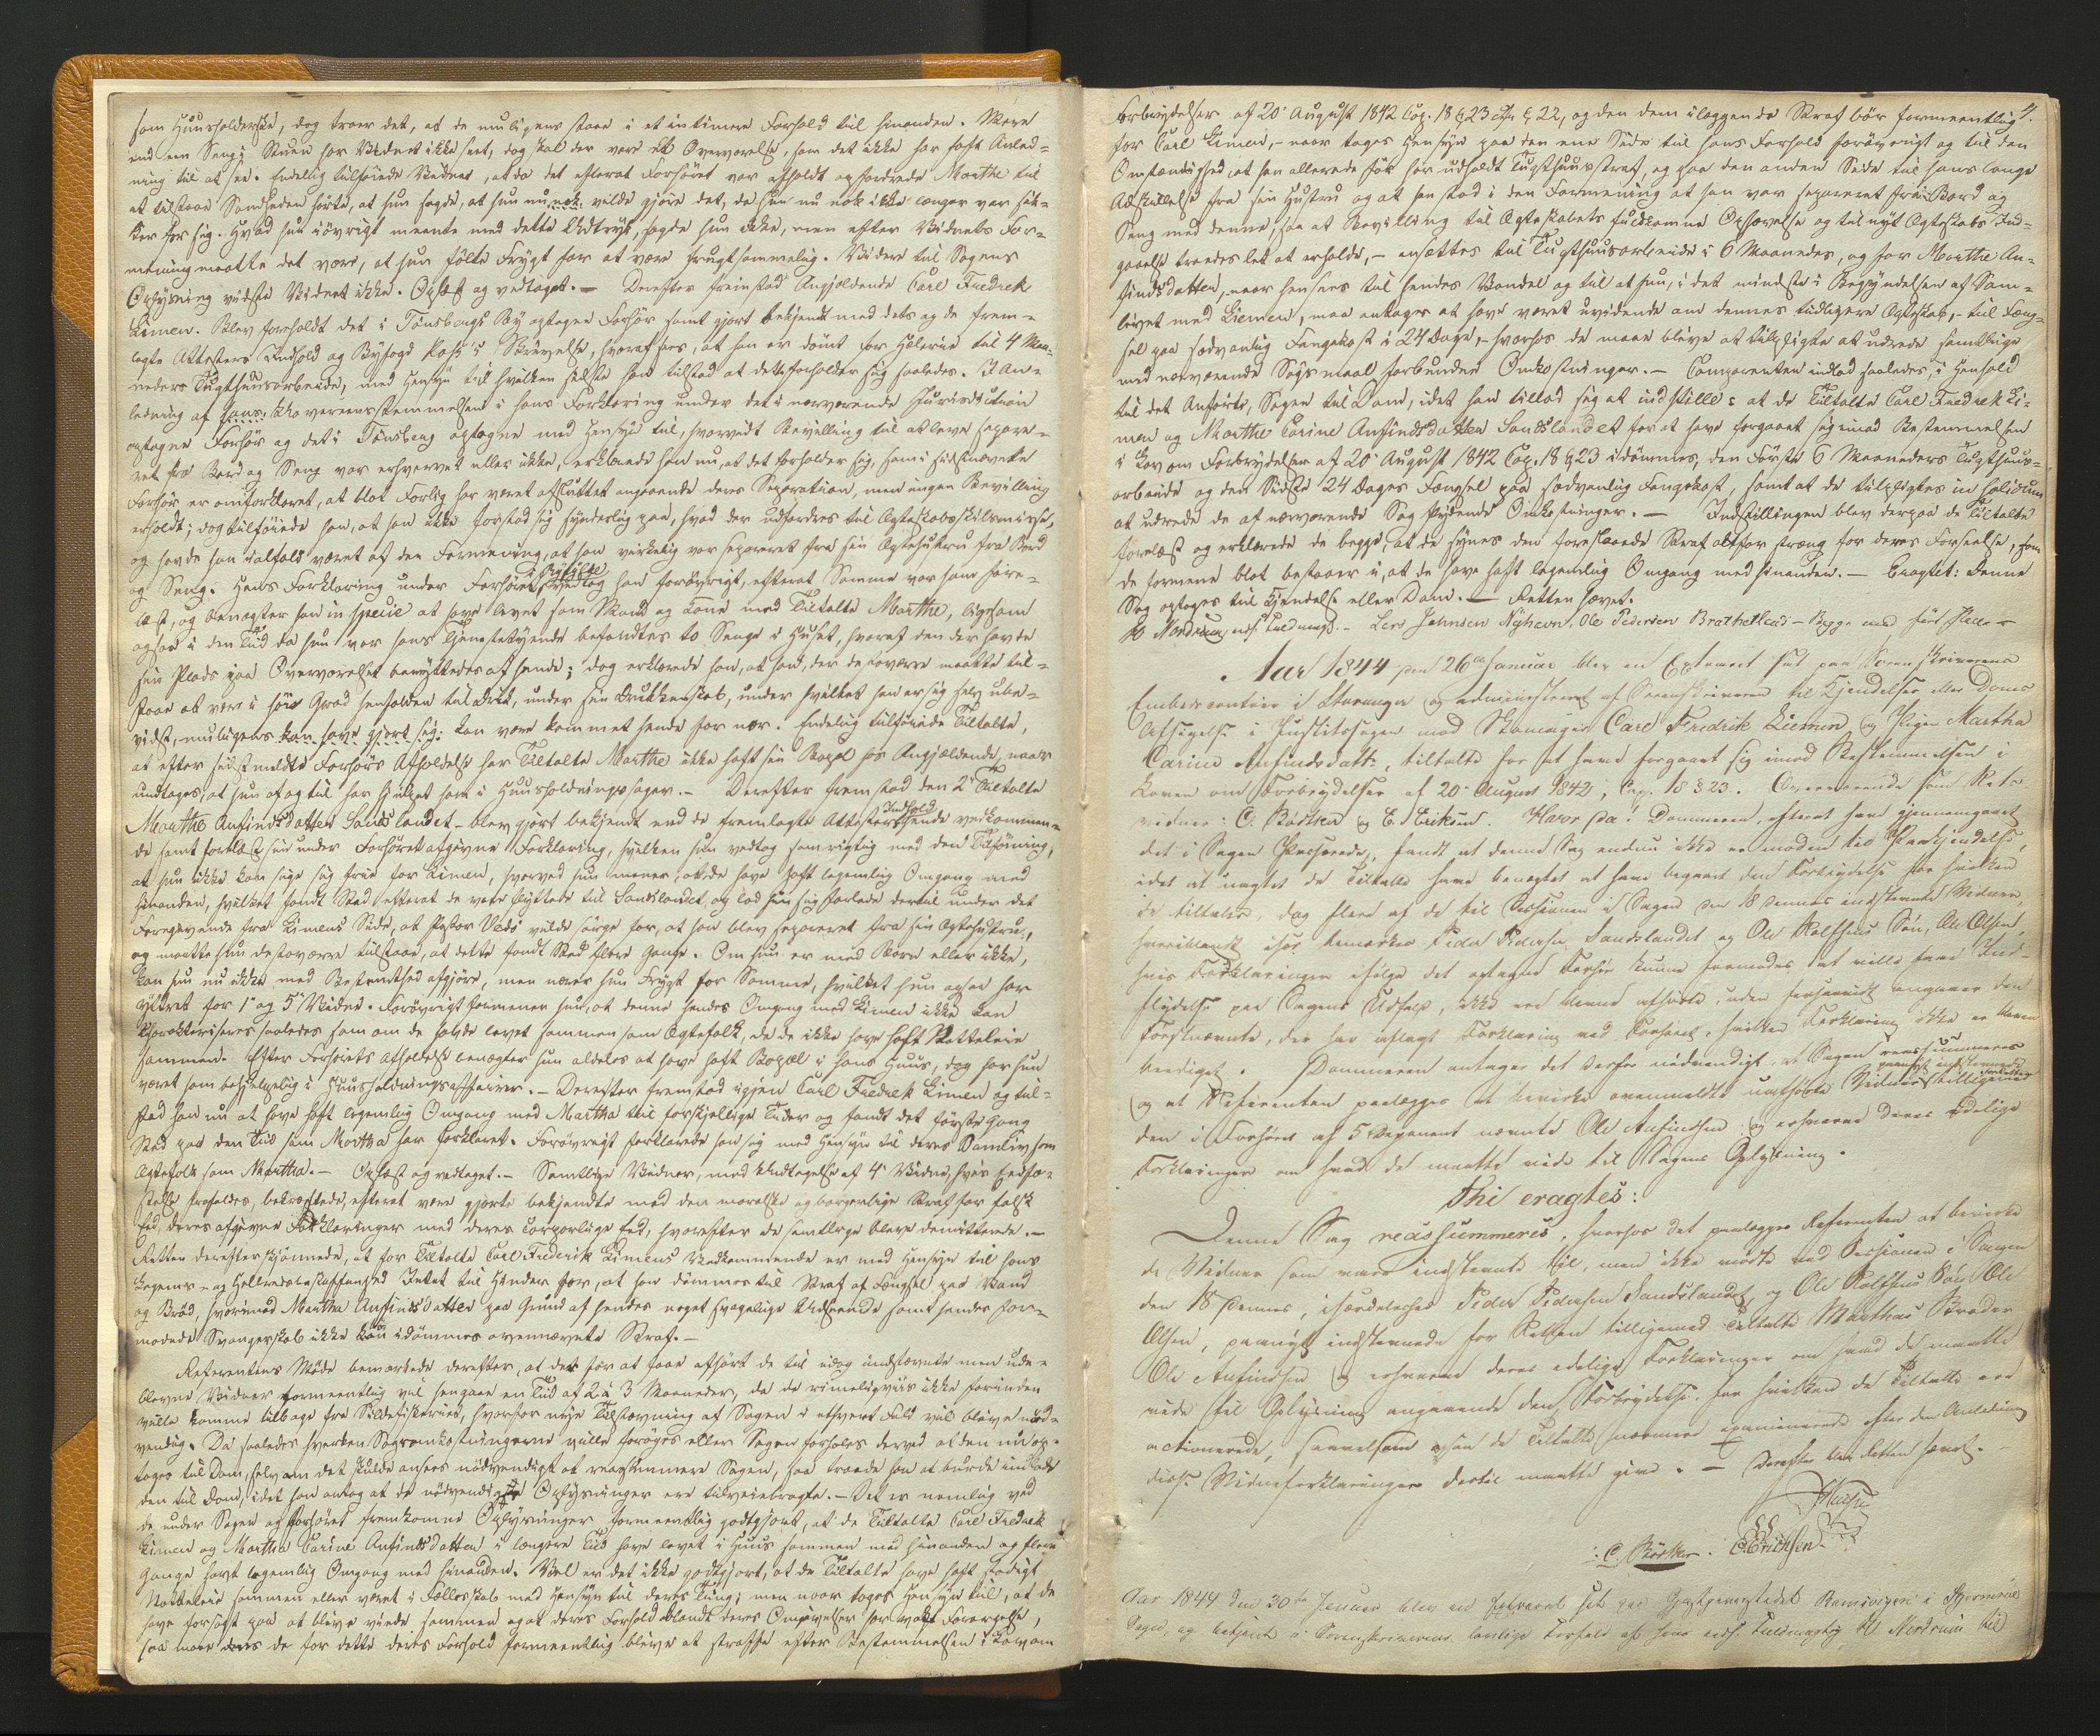 som Huusholderske, dog troer det, at de muligens staae i et intimere Forhold til hinanden. Mere
end een Seng i Stuen har Vidnet ikke seet, dog skal der være een Overværelse, som det ikke har haft Anled-
ning til at see. Endelig tilføiede Vidnet, at da det efterat Forhøret var afholdt opfordrede Marthe til
at tilstaae Sandheden heraf, at hun sagde, at hun nu nok vilde gjøre det, da hun nu nok ikke længer var sik-
ker for sig. Hvad hun iøvrigt meente med dette Udtryk, sagde hun ikke, men efter Vidnets For-
mening maatte det være, at hun følte Frygt for at være frugtsommelig. Videre til Sagens
Oplysning vidste Vidnet ikke. Oplæst og vedtaget. — Derefter fremstod Angjældende Carl Fredrek
Limen. Blev foreholdt det i Tønsbergs By optagne Forhør samt gjort bekjendt med dets og de frem-
lagte Attesters Indhold og Byfogd Koss's Skrivelse, hvoraf sees, at han er dømt for Hæleri til 4 Maa-
neders Tugthuusarbeide, med Hensyn til hvilken sidste han tilstod at dette forholder sig saaledes. I An-
ledning af hans ikke overeensstemmelsen i hans Forklaring under det i nærværende Jurisdiction
optagne Forhør og det i Tønsberg optagne med Hensyn til, hvorvidt Bevilling til at leve separe-
ret fra Bord og Seng var erhvervet eller ikke, erklærede han nu, at det forholder sig, som i sidstnævnte
Forhør er omforklaret, at blot Forlig har været afsluttet angaaende deres Separation, men ingen Bevilling
erholdt; dog tilføiede han, at han ikke forstod sig synderlig paa, hvad der udfordres til Ægteskabsskilsmisse,
og havde han ialfald været af den Formening, at han virkelig var separeret fra sin Ægtehustru fra Bord
og Seng. Hans Forklaring under Forhøret i Ryfylke vedtog han forøvrigt, efterat Samme var ham fore-
læst, og benægter han in specie at have levet som Mand og Kone med Tiltalte Marthe, ligesom
ogsaa i den Tid da hun var hans Tjenestetyende befandtes to Senge i Huset, hvoraf den der havde
sin Plads paa Overværelset benyttedes af hende; dog erklærede han, at han, der desværre maatte til-
staae at være i høi Grad henfalden til Drik, under sin Drukkenskab, under hvilket han er sig selv ube-
vidst, muligens kan have gjort sig: kan være kommet hende for nær. Endelig tilføiede Tiltalte,
at efter sidstmeldte Forhørs Afholdelse har Tiltalte Marthe ikke haft sin Bopæl hos Angjældende, naar
undtages, at hun af og til har hjulpet ham i Huusholdningssager. — Derefter fremstod den 2' Tiltalte
Marthe Anfindsdatter Sandslandet — blev gjort bekjendt med de fremlagte Attesters Indhold hende vedkommen-
de samt forelæst sin under Forhøret afgivne Forklaring, hvilken hun vedtog som rigtig med den Tilføining,
at hun ikke kan sige sig frie for Limen, hvorved hun mener, at de have haft legemlig Omgang med
hinanden, hvilket fandt Sted efterat de vare flyttede til Sandslandet, og lod hun sig forlede dertil under det
Foregivende fra Limens Side, at Pastor Vedø vilde sørge for, at han blev separeret fra sin Ægtehustru,
og maatte hun desværre tilstaae, at dette fandt Sted flere Gange. Om hun er med Barn eller ikke,
kan hun nu ikke med Bestemthed afgjøre, men nærer hun Frygt for Samme, hvilket hun ogsaa har
yttret for 1' og 5' Vidne. Forøvrigt formener hun, at denne hendes Omgang med Limen ikke kan
charakteriseres saaledes som om de havde levet sammen som Ægtefolk, da de ikke have haft Natteleie
sammen. Efter Forhørets Afholdelse benægter hun aldeles at have haft Bopæl i hans Huus, dog har hun
været ham behjelpelig i Huusholdningsaffairer. — Derefter fremstod igjen Carl Fredrek Limen og til-
stod han nu at have haft legemlig Omgang med Martha til forskjellige Tider og fandt det første Gang
Sted paa den Tid som Martha har forklaret. Forøvrigt forklarede han sig med Hensyn til deres Samliv som
Ægtefolk som Martha. — Oplæst og vedtaget. — Samtlige Vidner, med Undtagelse af 4' Vidne, hvis Eedfæ-
stelse frafaldes, bekræftede, efterat være gjorte bekjendte med den moralske og borgerlige Straf for falsk
Eed, deres afgivne Forklaringer med deres corporlige Eed, hvorefter de samtlige bleve demitterede. —
Retten derefter skjønnede, at for Tiltalte Carl Frederik Limens Vedkommende er med Hensyn til hans
Legems- og Helbredsbeskaffenhed Intet til Hinder for, at han dømmes til Straf af Fængsel paa Vand
og Brød, hvorimod Martha Anfindsdatter paa Grund af hendes noget svagelige Udseende samt hendes for-
modede Svangerskab ikke kan idømmes ovennævnte Straf. —
Referentens Møde bemærkede derefter, at der for at faae afhørt de til idag indstævnte men ude-
blevne Vidner formeentlig vil hengaae en Tid af 2 à 3 Maaneder, da de rimeligviis ikke forinden
ville komme tilbage fra Sildefiskeriet, hvorfor nye Tilstævning af Sagen i ethvert Fald vil blive nød-
vendig. Da saaledes hverken Sagsomkostningerne ville forøges eller Sagen forhales derved at den nu op-
tages til Dom, selv om det skulde ansees nødvendigt at reassummere Sagen, saa troede han at burde indlade
den til Dom, idet han antog at de nødvendigste Oplysninger ere tilveiebragte. — Det er nemlig ved
de under Sagen og Forhøret fremkomne Oplysninger formeentlig godtgjort, at de Tiltalte Carl Fredrek
Limen og Martha Carine Anfindsdatter i længere Tid have levet i Huus sammen med hinanden og flere
Gange havt legemlig Omgang med hinanden. Vel er det ikke godtgjort, at de Tiltalte have haft stadigt
Natteleie sammen eller været i Fællesskab med Hensyn til deres Ting; men naar tages Hensyn til, at de
have forsøgt paa at blive viede sammen og at deres Forhold blandt deres Omgivelser har vakt Forargelse,
saa maae de for dette deres Forhold formeentlig blive at straffe efter Bestemmelsen i Lov om
4.
Forbrydelser af 20' August 1842 Cap. 18 § 23 cfr § 22, og den dem ilæggende Straf bør formeentlig
for Carl Limen, — naar tages Hensyn paa den ene Side til hans Forhold forøvrigt og til den
Omstændighed at han allerede før har udholdt Tugthuusstraf, og paa den anden Side til hans lange
Adskillelse fra sin Hustru og at han stod i den Formening at han var separeret fra Bord og
Seng med denne, saa at Bevilling til Ægteskabets fuldkomne Ophævelse og til nyt Ægteskabs Ind-
gaaelse troedes let at erholde, — ansættes til Tugthuusarbeide i 6 Maaneder, og for Marthe An-
findsdatter, — naar hensees til hendes Vandel og til at hun, i det mindste i Begyndelsen af Sam-
livet med Liemen, maa antages at have været uvidende om dennes tidligere Ægteskab, — til Fæng-
sel paa sædvanlig Fangekost i 24 Dage, — hvorhos de maae blive at tilpligte at udrede samtlige
med nærværende Søgsmaal forbundne Omkostninger. — Comparenten indlod saaledes, i Henhold
til det Anførte, Sagen til Dom, idet han tillod sig at indstille: at de Tiltalte Carl Fredrek Li-
men og Marthe Carine Anfindsdatter Sandslandet for at have forgaaet sig imod Bestemmelsen
i Lov om Forbrydelser af 20' August 1842 Cap. 18 § 23 idømmes, den Første 6 Maaneders Tugthuus-
arbeide og den Sidste 24 Dages Fængsel paa sædvanlig Fangekost, samt at de tilpligtes in solidum
at udrede de af nærværende Sag flydende Omkostninger. — Indstillingen blev derpaa de Tiltalte
forelæst og erklærede de begge, at de synes den foreslaaede Straf altfor streng for deres Forseelse, som
de formene blot bestaaer i, at de have haft legemlig Omgang med hinanden. — Eragtet: Denne
Sag optages til Kjendelse eller Dom. — Retten hævet.
H Nordrum, edsf. Fuldmægt. — Lars Johnsen Nyhavn. Ole Pedersen Brathetland — Begge med ført Pen —
Aar 1844 den 26de Januar blev en Extraret sat paa Sorenskriverens
Embedscontoir i Stavanger og administreret af Sorenskriveren til Kjendelses eller Doms
Afsigelse i Justitssagen mod Skomager Carl Fredrik Liemen og Pigen Martha
Carine Anfindsdattr, tiltalte for at have forgaaet sig imod Bestemmelsen i
Loven om Forbrydelser af 20' August 1842, Cap. 18 § 23. Overværende som Rets-
vidner: C. Bødtker og E. Eriksen. Hvor da: Dommeren, efterat have gjennemgaaet
det i Sagen Passerede, fandt at denne Sag endnu ikke er moden til Paakjendelse,
idet at uagtet de Tiltalte have benægtet at have begaaet den Forbrydelse for hvilken
de tiltales, dog flere af de til Sessionen i Sagen den 18 dennes indstævnte Vidner,
hvoriblandt især bemærkes Peder Pedersen Sandslandet og Ole Rolfsens Søn, Ole Olsen,
hvis Forklaringer ifølge det optagne Forhør kunne formodes at ville have Ind-
flydelse paa Sagens Udfald, ikke ere blevne afhørte, uden forsaavidt angaaer den
Førstnævnte, der har aflagt Forklaring ved Forhøret, hvilken Forklaring ikke er bleven
beediget. Dommeren antager det derfor nødvendigt at Sagen reassummeres
og at Referenten paalægges at bevirke ovenmeldte uafhørte Vidner paanyt indstævnede tilligemed
den i Forhøret af 5 Deponent nævnte Ole Anfindsen og erhverve deres edelige
Forklaringer om hvad de maatte vide til Sagens Oplysning.
Thi eragtes:
Denne Sag reassummeres, hvorhos det paalægges Referenten at bevirke
de Vidner som vare indstævnte til, men ikke mødte ved Sessionen i Sagen
den 18 dennes, isærdeleshed Peder Pedersen Sandslandet, og Ole Rolfsens Søn Ole
Olsen, paanyt indstævnede for Retten tilligemed Tiltalte Marthas Broder
Ole Anfindsen og erhverve deres edelige Forklaringer om hvad de maatte
vide til Oplysning angaaende den Forbrydelse for hvilken de Tiltalte ere
actionerede, saavelsom og saa de Tiltalte nærmere examinerede efter den Anledning
disse Vidneforklaringer dertil maatte give. — Derefter blev Retten hævet. —
C. Bødtker. E. Erichsen
Aar 1844 den 30te Januar blev en Extraret sat paa Gjæstgiverstedet Ramsvigen i Hjermelands
Sogn, og betjent i Sorenskriverens lovlige Forfald af hans edsf. Fuldmægtig H Nordrum til